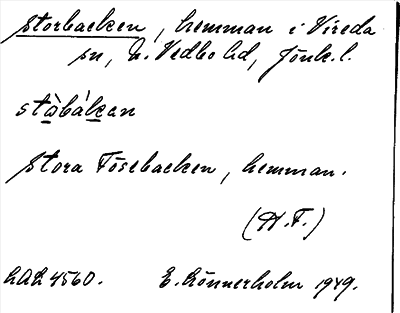 Storbacken, hemman i Vireda
sn, N. Vedbo hd, Jönk. l.
stàbákan
Stora Fösebacken, hemman.
(H.F.)
LAL 4560. E. Rönnerholm 1949.